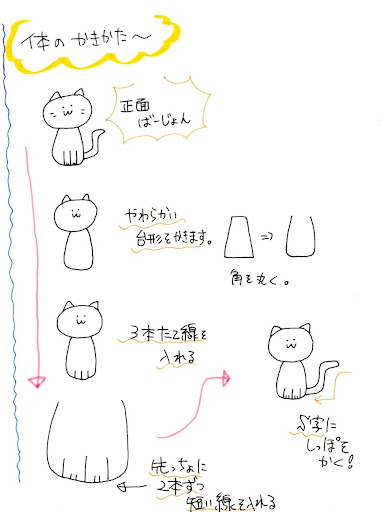 体の かきかた〜
正面
ばーじょん
やわらかい
台形をかきます。
角を丸く。
3本たて線を
入れる
S字に
しっぽを
かく!
先っちょに
2本ずつ
短い線を入れる